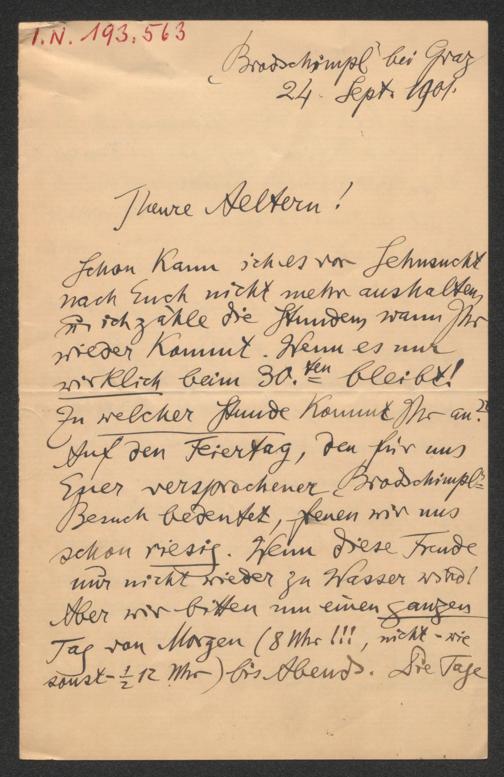 I.N. 193.563
„Brodschimpl" bei Graz
24. Sept. 1901.
Theure Aeltern!
Schon kann ich es vor Sehnsucht
nach Euch nicht mehr aushalten,
ich zähle die Stunden, wann Ihr
wieder kommt. Wenn es nur
wirklich beim 30.ten bleibt!
Zu welcher Stunde kommt Ihr an??
Auf den Feiertag, den für uns
Euer versprochener „Brodschimpl"-
Besuch bedeutet, freuen wir uns
schon riesig. Wenn diese Freude
nur nicht wieder zu Wasser wird!
Aber wir bitten um einen ganzen
Tag von Morgen (8 Uhr!!!, nicht - wie
sonst - ½ 12 Uhr) bis Abends. Die Tage